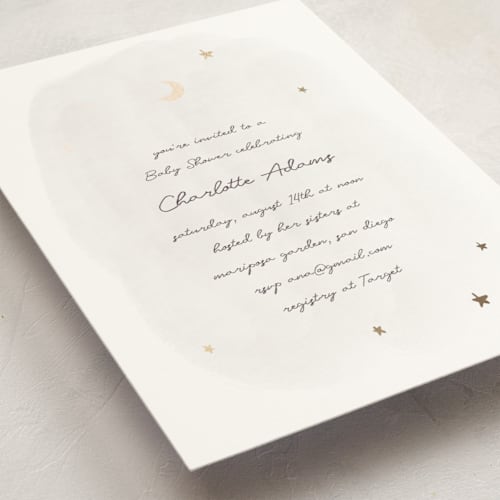 you're invited to a
Baby Shower celebrating
Charlotte Adams
saturday, august 14th at noon
hosted by her sisters at
mariposa garden, san diego
rsvp ana@gmail.com
registry at Target